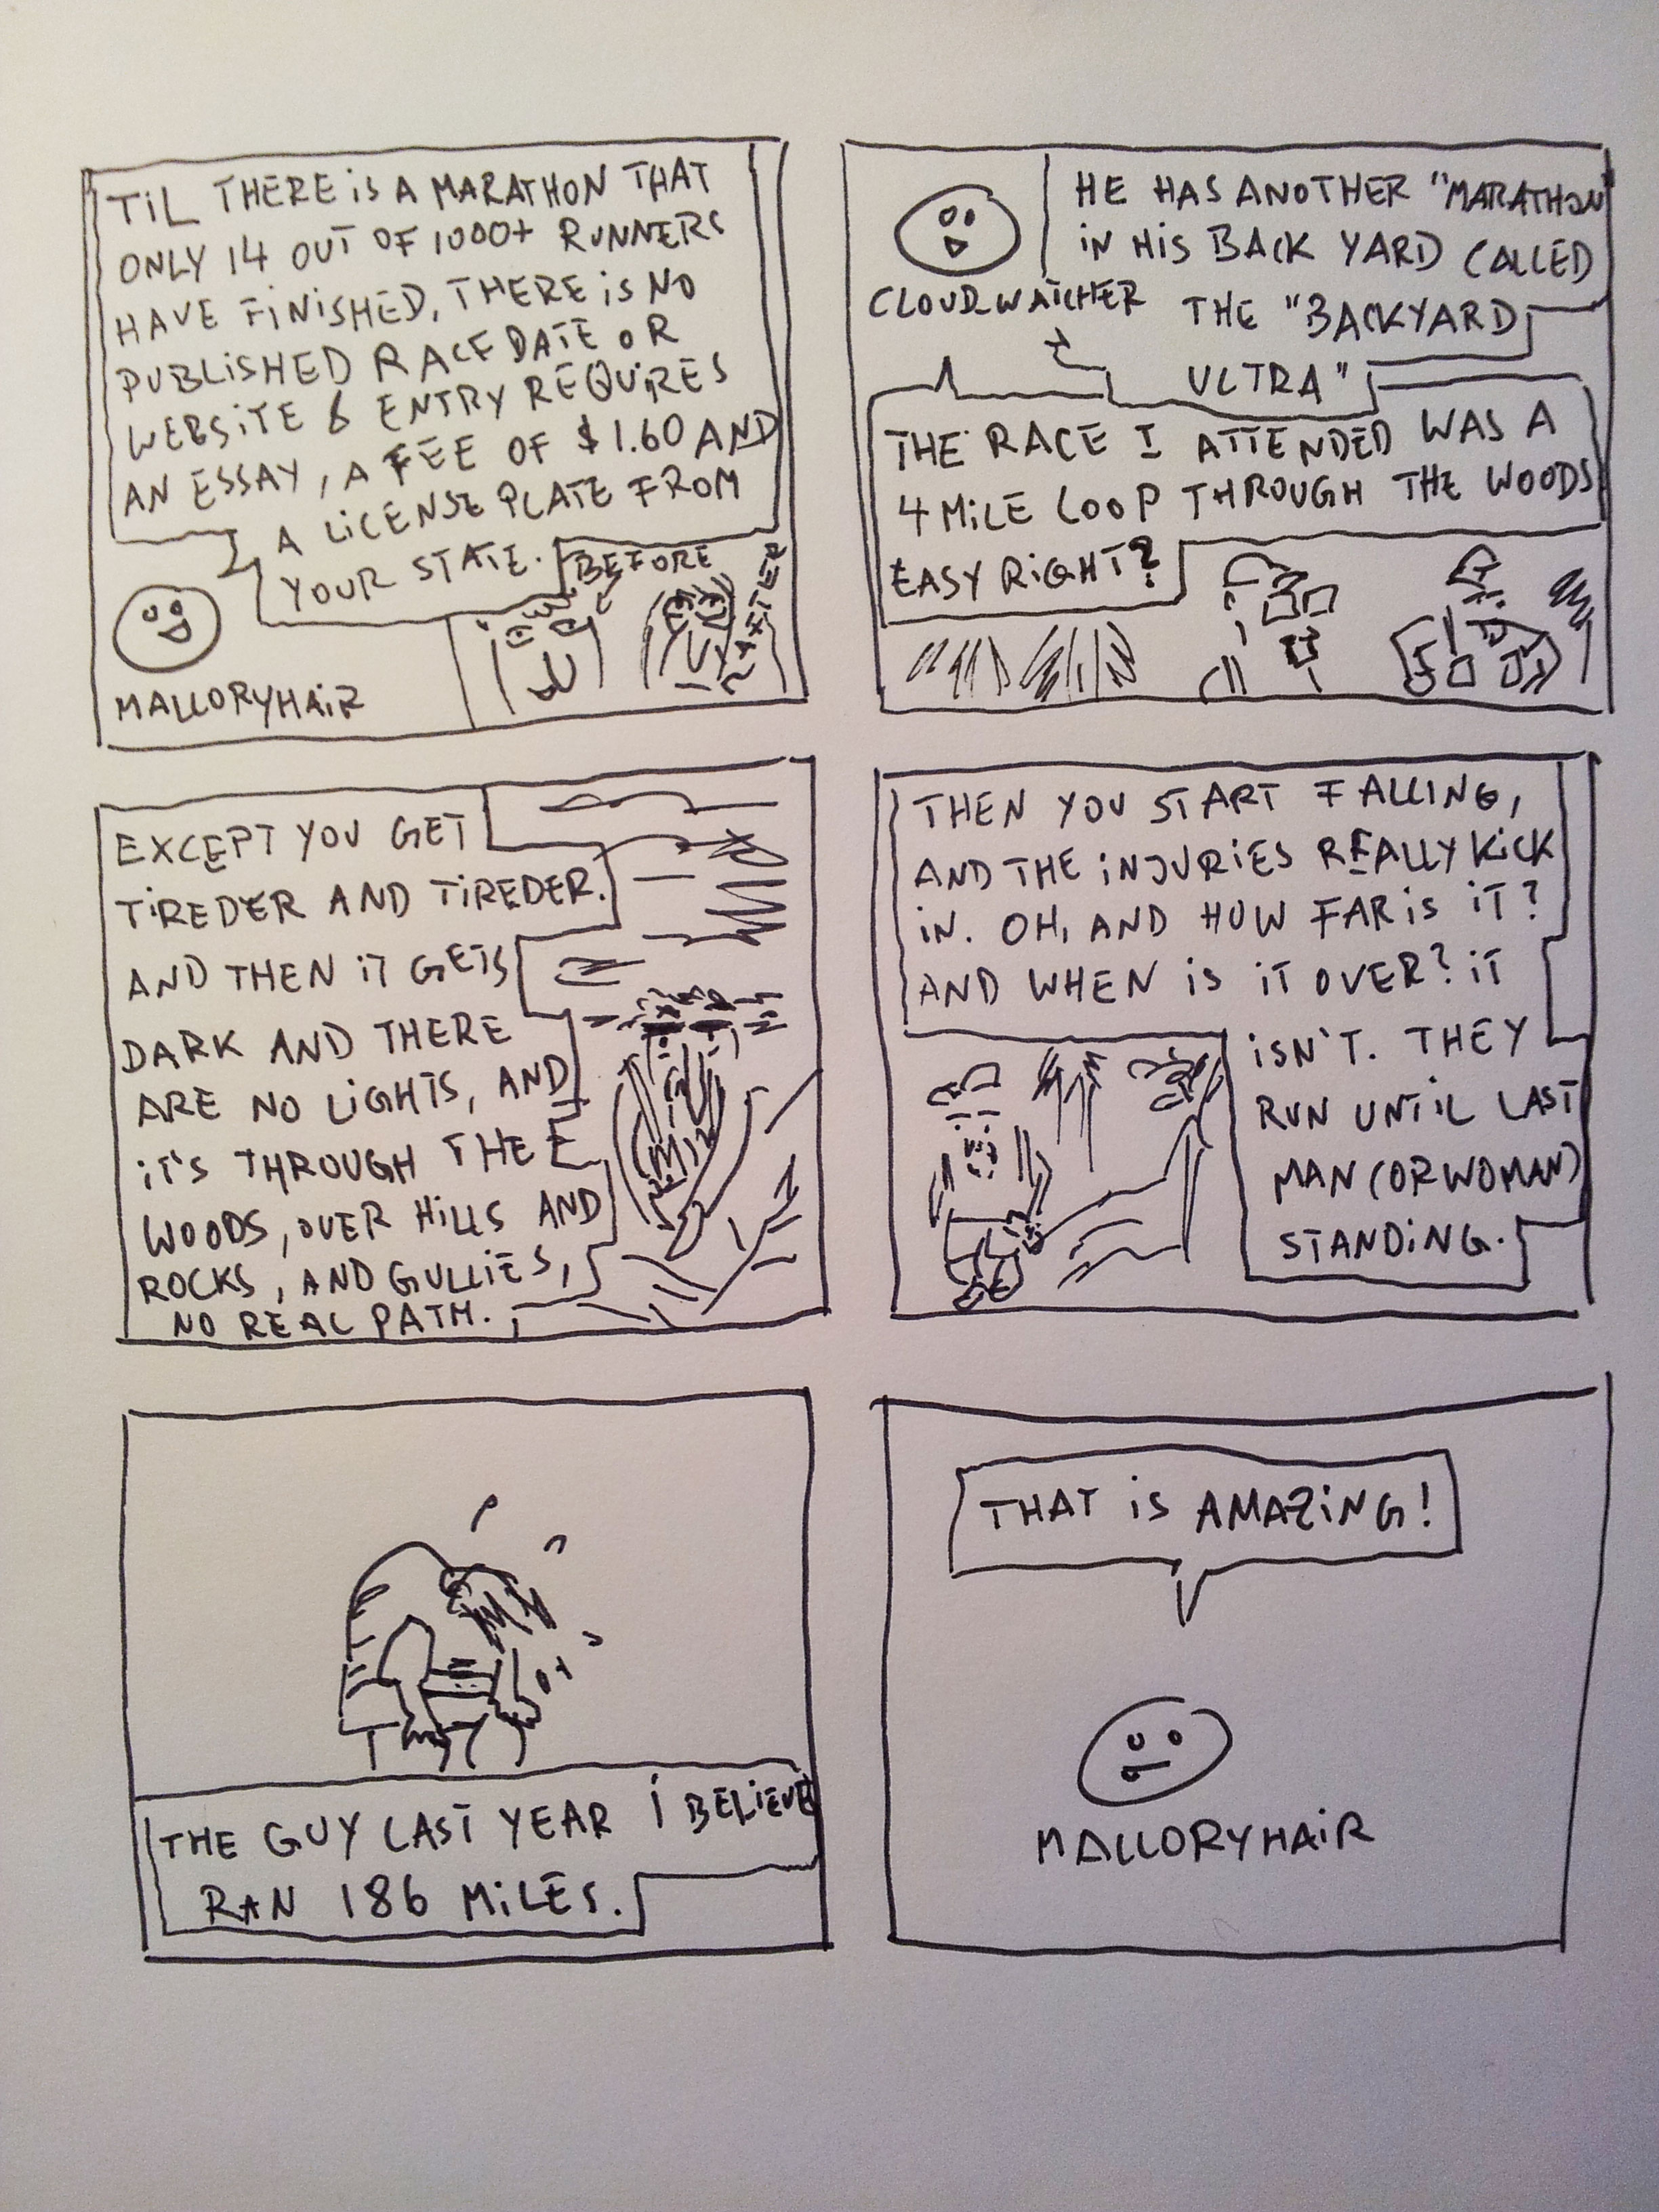 TIL THERE IS A MARATHON THAT
ONLY 14 OUT OF 1000+ RUNNERS
HAVE FINISHED, THERE IS NO
PUBLISHED RACE DATE OR
WEBSITE & ENTRY REQUIRES
AN ESSAY, A FEE OF $1.60 AND
A LICENSE PLATE FROM
YOUR STATE.
BEFORE
AFTER
MALLORYHAIR
HE HAS ANOTHER "MARATHON"
IN HIS BACK YARD CALLED
THE "BACKYARD
ULTRA"
CLOUD_WATCHER
THE RACE I ATTENDED WAS A
4 MILE LOOP THROUGH THE WOODS
EASY RIGHT?
EXCEPT YOU GET
TIREDER AND TIREDER.
AND THEN IT GETS
DARK AND THERE
ARE NO LIGHTS, AND
IT'S THROUGH THE
WOODS, OVER HILLS AND
ROCKS, AND GULLIES,
NO REAL PATH.
THEN YOU START FALLING,
AND THE INJURIES REALLY KICK
IN. OH, AND HOW FAR IS IT?
AND WHEN IS IT OVER? IT
ISN'T. THEY
RUN UNTIL LAST
MAN (OR WOMAN)
STANDING.
THE GUY LAST YEAR I BELIEVE
RAN 186 MILES.
THAT IS AMAZING!
MALLORYHAIR